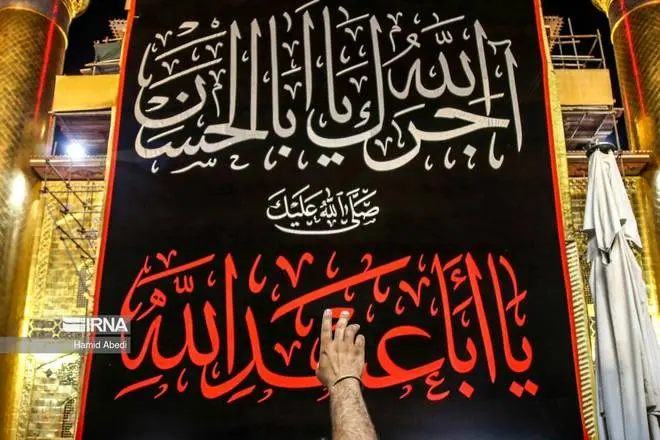 آجرك الله يا أبا الحسن
صلى الله عليك
يا أبا عبد الله
IRNA
Hamid Abedi